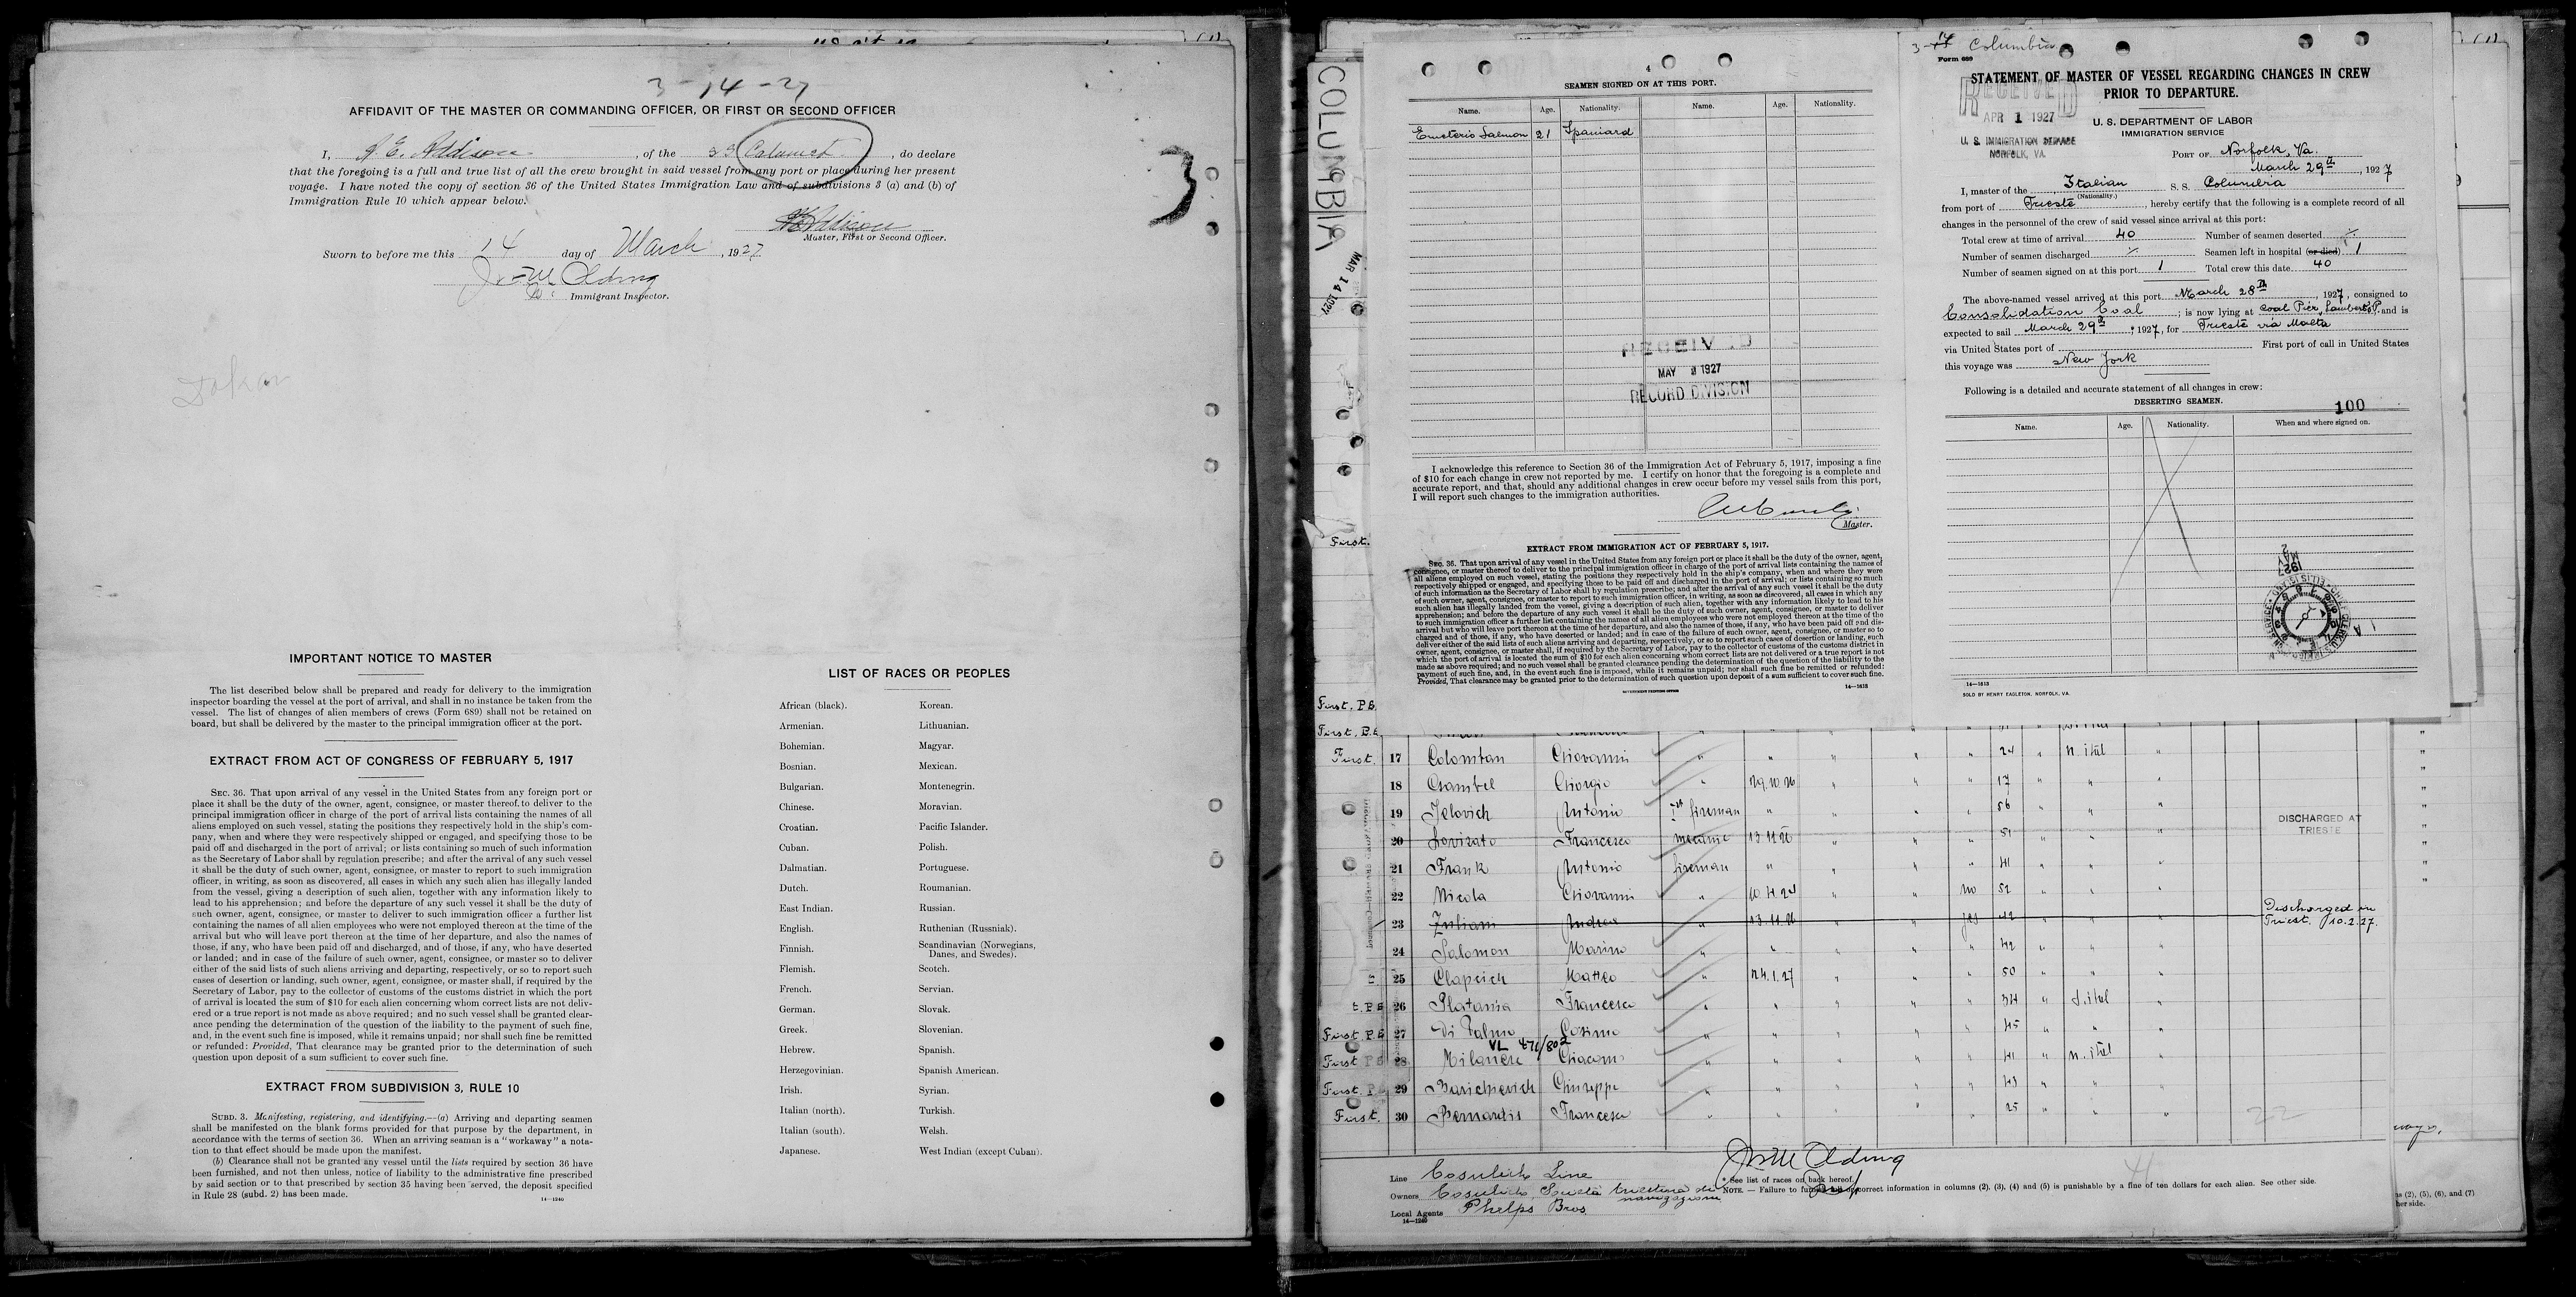 3-14-27
AFFIDAVIT OF THE MASTER OR COMMANDING OFFICER, OR FIRST OR SECOND OFFICER
I, A E. Addison, of the SS Calumet, do declare
that the foregoing is a full and true list of all the crew brought in said vessel from any port or place during her present
voyage. I have noted the copy of section 36 of the United States Immigration Law and of subdivisions 3 (a) and (b) of
Immigration Rule 10 which appear below.
Addison
Master, First or Second Officer.
3
Sworn to before me this 14 day of March, 1927
Jno M Olding
Immigrant Inspector.
Dakar
IMPORTANT NOTICE TO MASTER
The list described below shall be prepared and ready for delivery to the immigration
inspector boarding the vessel at the port of arrival, and shall in no instance be taken from the
vessel. The list of changes of alien members of crews (Form 689) shall not be retained on
board, but shall be delivered by the master to the principal immigration officer at the port.
EXTRACT FROM ACT OF CONGRESS OF FEBRUARY 5, 1917
SEC. 36. That upon arrival of any vessel in the United States from any foreign port or
place it shall be the duty of the owner, agent, consignee, or master thereof to deliver to the
principal immigration officer in charge of the port of arrival lists containing the names of all
aliens employed on such vessel, stating the positions they respectively hold in the ship's com-
pany, when and where they were respectively shipped or engaged, and specifying those to be
paid off and discharged in the port of arrival; or lists containing so much of such information
as the Secretary of Labor shall by regulation prescribe; and after the arrival of any such vessel
it shall be the duty of such owner, agent, consignee, or master to report to such immigration
officer, in writing, as soon as discovered, all cases in which any such alien has illegally landed
from the vessel, giving a description of such alien, together with any information likely to
lead to his apprehension; and before the departure of any such vessel it shall be the duty of
such owner, agent, consignee, or master to deliver to such immigration officer a further list
containing the names of all alien employees who were not employed thereon at the time of the
arrival but who will leave port thereon at the time of her departure, and also the names of
those, if any, who have been paid off and discharged, and of those, if any, who have deserted
or landed; and in case of the failure of such owner, agent, consignee, or master so to deliver
either of the said lists of such aliens arriving and departing, respectively, or so to report such
cases of desertion or landing, such owner, agent, consignee, or master shall, if required by the
Secretary of Labor, pay to the collector of customs of the customs district in which the port
of arrival is located the sum of $10 for each alien concerning whom correct lists are not deliv-
ered or a true report is not made as above required; and no such vessel shall be granted clear-
ance pending the determination of the question of the liability to the payment of such fine,
and, in the event such fine is imposed, while it remains unpaid; nor shall such fine be remitted
or refunded: Provided, That clearance may be granted prior to the determination of such
question upon deposit of a sum sufficient to cover such fine.
EXTRACT FROM SUBDIVISION 3, RULE 10
SUBD. 3. Manifesting, registering, and identifying.—(a) Arriving and departing seamen
shall be manifested on the blank forms provided for that purpose by the department, in
accordance with the terms of section 36. When an arriving seaman is a "workaway" a nota-
tion to that effect should be made upon the manifest.
(b) Clearance shall not be granted any vessel until the lists required by section 36 have
been furnished, and not then unless, notice of liability to the administrative fine prescribed
by said section or to that prescribed by section 35 having been served, the deposit specified
in Rule 28 (subd. 2) has been made.
14—1240
LIST OF RACES OR PEOPLES
African (black). Korean.
Armenian. Lithuanian.
Bohemian. Magyar.
Bosnian. Mexican.
Bulgarian. Montenegrin.
Chinese. Moravian.
Croatian. Pacific Islander.
Cuban. Polish.
Dalmatian. Portuguese.
Dutch. Roumanian.
East Indian. Russian.
English. Ruthenian (Russniak).
Finnish. Scandinavian (Norwegians,
Danes, and Swedes).
Flemish. Scotch.
French. Servian.
German. Slovak.
Greek. Slovenian.
Hebrew. Spanish.
Herzegovinian. Spanish American.
Irish. Syrian.
Italian (north). Turkish.
Italian (south). Welsh.
Japanese. West Indian (except Cuban).
COLUMBIA
MAR 14 1927
4
SEAMEN SIGNED ON AT THIS PORT.
Name. Age. Nationality. Name. Age. Nationality.
Emeterio Salmon 21 Spaniard
RECEIVED
MAY 1927
RECORD DIVISION
I acknowledge this reference to Section 36 of the Immigration Act of February 5, 1917, imposing a fine
of $10 for each change in crew not reported by me. I certify on honor that the foregoing is a complete and
accurate report, and that, should any additional changes in crew occur before my vessel sails from this port,
I will report such changes to the immigration authorities.
Master.
EXTRACT FROM IMMIGRATION ACT OF FEBRUARY 5, 1917.
SEC. 36. That upon arrival of any vessel in the United States from any foreign port or place it shall be the duty of the owner, agent,
consignee, or master thereof to deliver to the principal immigration officer in charge of the port of arrival lists containing the names of
all aliens employed on such vessel, stating the positions they respectively hold in the ship's company, when and where they were
respectively shipped or engaged, and specifying those to be paid off and discharged in the port of arrival; or lists containing so much
of such information as the Secretary of Labor shall by regulation prescribe; and after the arrival of any such vessel it shall be the duty
of such owner, agent, consignee, or master to report to such immigration officer, in writing, as soon as discovered, all cases in which any
such alien has illegally landed from the vessel, giving a description of such alien, together with any information likely to lead to his
apprehension; and before the departure of any such vessel it shall be the duty of such owner, agent, consignee, or master to deliver
to such immigration officer a further list containing the names of all alien employees who were not employed thereon at the time of the
arrival but who will leave port thereon at the time of her departure, and also the names of those, if any, who have been paid off and dis-
charged and of those, if any, who have deserted or landed; and in case of the failure of such owner, agent, consignee, or master so to
deliver either of the said lists of such aliens arriving and departing, respectively, or so to report such cases of desertion or landing, such
owner, agent, consignee, or master, shall, if required by the Secretary of Labor, pay to the collector of customs of the customs district in
which the port of arrival is located the sum of $10 for each alien concerning whom correct lists are not delivered or a true report is not
made as above required; and no such vessel shall be granted clearance pending the determination of the question of the liability to the
payment of such fine, and, in the event such fine is imposed, while it remains unpaid; nor shall such fine be remitted or refunded:
Provided, That clearance may be granted prior to the determination of such question upon deposit of a sum sufficient to cover such fine.
GOVERNMENT PRINTING OFFICE 14—1613
3-14 Columbia
Form 689
STATEMENT OF MASTER OF VESSEL REGARDING CHANGES IN CREW
PRIOR TO DEPARTURE.
RECEIVED
APR 1 1927
U. S. IMMIGRATION SERVICE
NORFOLK, VA.
U. S. DEPARTMENT OF LABOR
IMMIGRATION SERVICE
PORT OF Norfolk, Va.
March 29th, 1927
I, master of the Italian S. S. Columbia
(Nationality.)
from port of Trieste, hereby certify that the following is a complete record of all
changes in the personnel of the crew of said vessel since arrival at this port:
Total crew at time of arrival 40 Number of seamen deserted
Number of seamen discharged Seamen left in hospital (or died) 1
Number of seamen signed on at this port 1 Total crew this date 40
The above-named vessel arrived at this port March 28th, 1927, consigned to
Consolidation Coal; is now lying at Coal Pier, Lambert's P. and is
expected to sail March 29th, 1927, for Trieste via Malta
via United States port of First port of call in United States
this voyage was New York
Following is a detailed and accurate statement of all changes in crew:
DESERTING SEAMEN.
100
Name. Age. Nationality. When and where signed on.
1927
MAY
2
14—1613
SOLD BY HENRY EAGLETON, NORFOLK, VA.
First.
First. P.E.
First. P.E.
First. 17 Colomban Giovanni " " " " " 24 " n. ital "
18 Giorgio " 29.10.26 " " " 17 " " "
19 Jelovich Antonio 1st fireman " " " " 56 " " "
20 Lovisato Francesco 13.11.26 " " " 51 " " " DISCHARGED AT
TRIESTE
21 Frank Antonio fireman " " " " 41 " " "
22 Nicola Giovanni " 10.4.24 " " no 52 " " "
23 Zuliani Andrea " 13.11.26 " " yes 42 " " " Discharged in
Triest. 10.2.27.
24 Salomon Marino " " " " " 42 " " "
25 Clapcich Matteo " 24.1.27 " " " 50 " " "
26 Platania Francesco " " " " " 34 " s. ital "
First. P.E. 27 Di Palmo Cosimo " " " " " 45 " " "
First P.E. 28 Milanese Giacomo " " " " " 41 " n. ital "
First. P.E. 29 Barichievich Giuseppe " " " " " 43 " " "
First. 30 Bernardis Francesco " " " " " 25 " " "
22
Jno M Olding
Line Cosulich Line
* See list of races on back hereof.
Owners Cosulich, Società triestina di navigazione
NOTE.—Failure to furnish full or correct information in columns (2), (3), (4) and (5) is punishable by a fine of ten dollars for each alien. See other side.
Local Agents Phelps Bros
14—1240
(2), (5), (6), and (7)
her side.